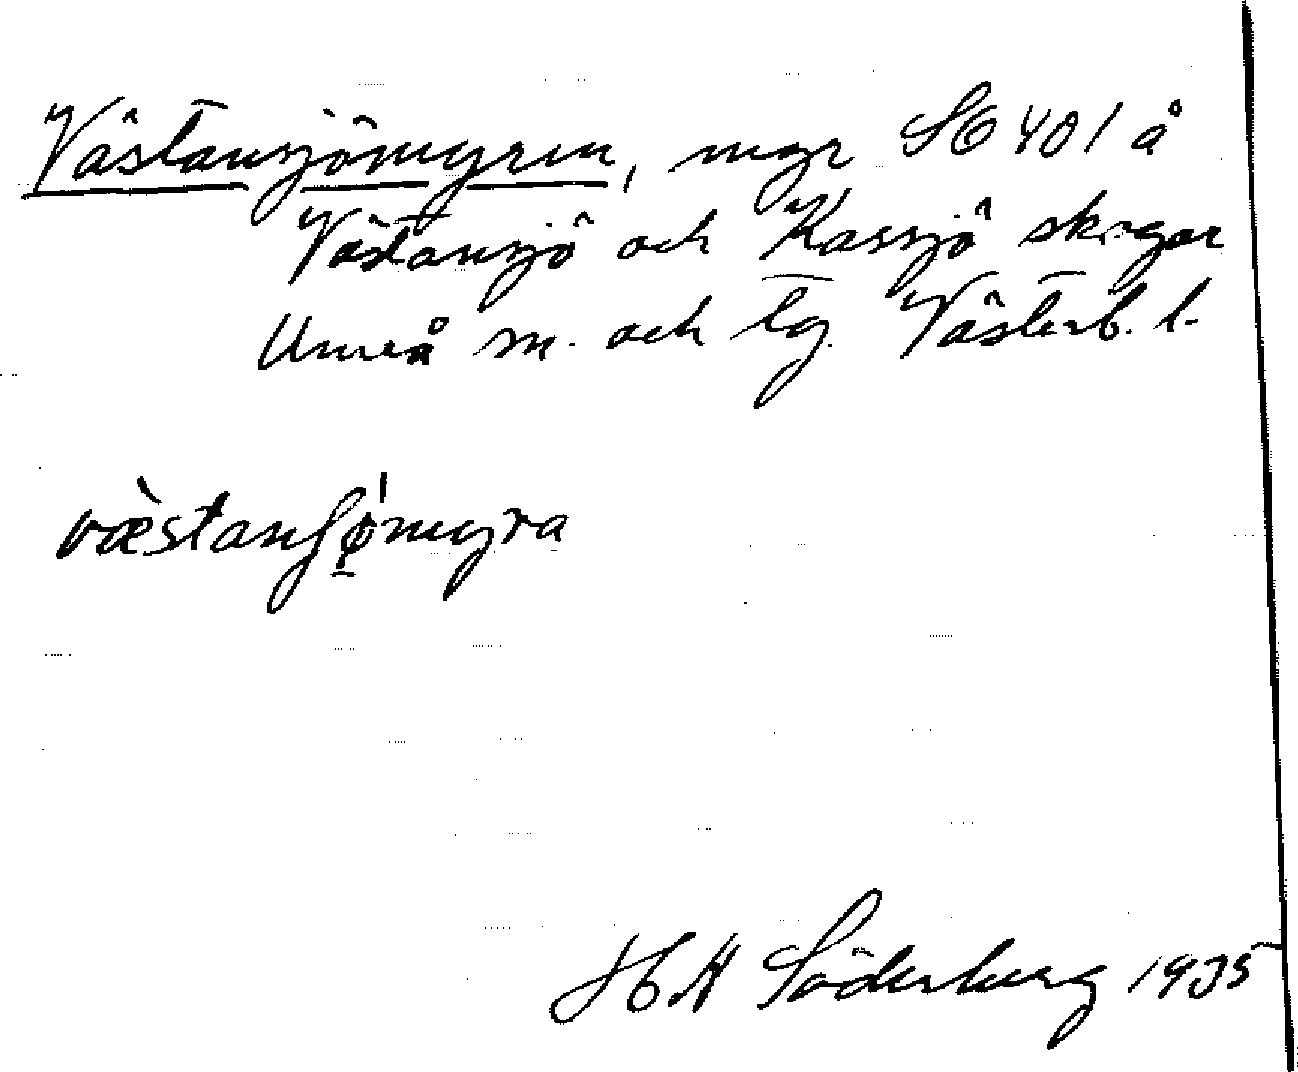 Västansjömyren, myr H 401 å
Västansjö och Kassjö skogar
Umeå sn. och lg. Västerb. l.
væstanʃømyra
H A Söderberg 1935